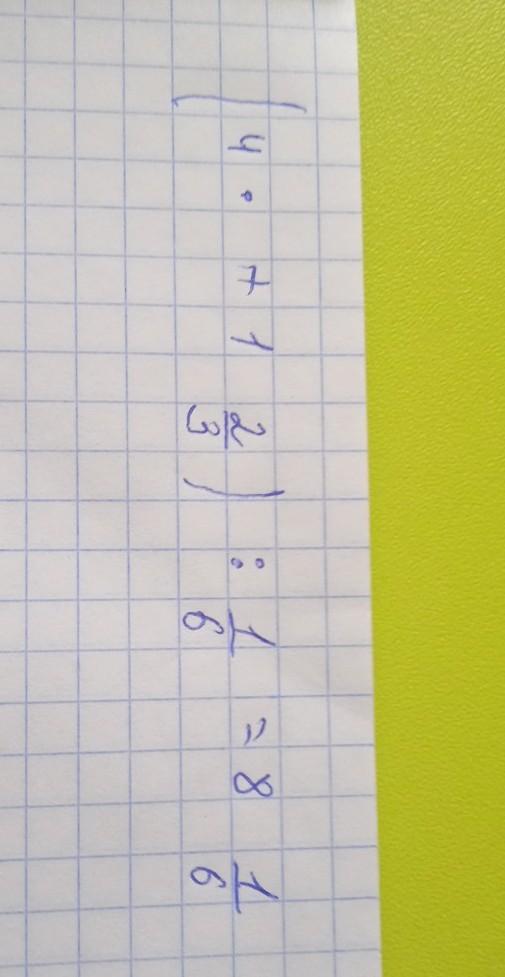 (4 · + 1 2/3) : 1/6 = 8 1/6